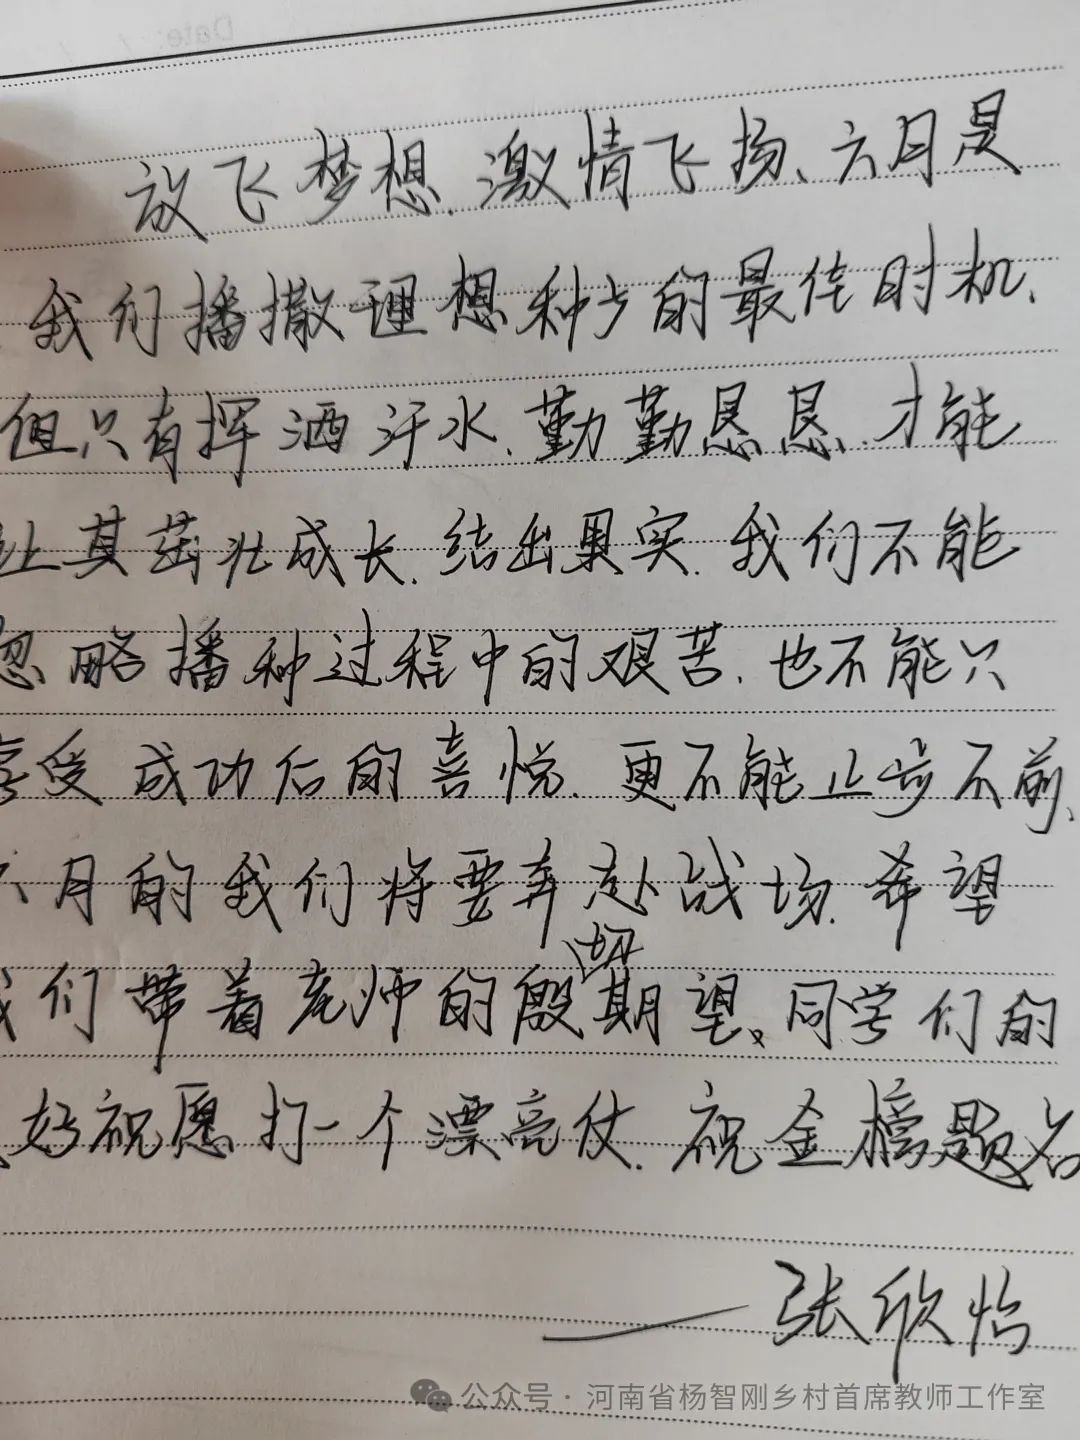 Date: / /
放飞梦想.激情飞扬、六月是
我们播撒理想种子的最佳时机、
但只有挥洒汗水.勤勤恳恳.才能
让其茁壮成长.结出果实.我们不能
忽略播种过程中的艰苦.也不能只
享受成功后的喜悦.更不能止步不前、
六月的我们将要奔赴战场.希望
我们带着老师的殷切期望。同学们的
好祝愿打一个漂亮仗.祝金榜题名
——张欣怡
公众号·河南省杨智刚乡村首席教师工作室